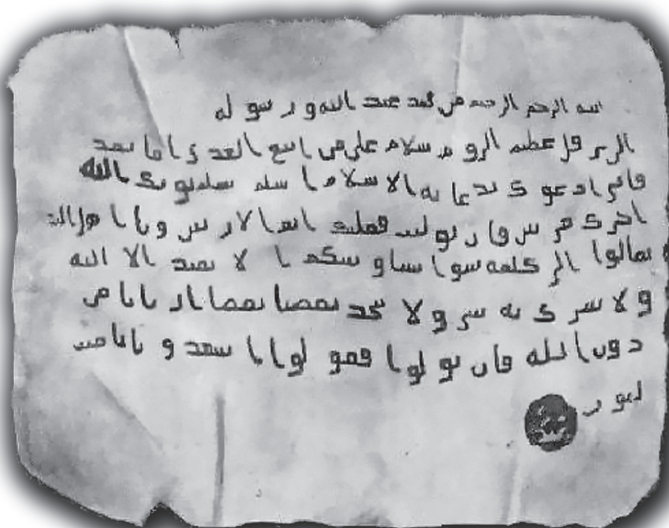 بسم الله الرحمن الرحيم من محمد عبد الله ورسوله
الى هرقل عظيم الروم سلام على من اتبع الهدى اما بعد
فاني ادعوك بدعاية الاسلام اسلم تسلم يوتك الله
اجرك مرتين فان توليت فعليك اثم الاريسين ويا اهل الكت
ب تعالوا الى كلمة سوا بيننا وبينكم ا لا نعبد الا الله
ولا نشرك به شي ولا يتخذ بعضنا بعضا اربابا من
دون الله فان تولوا فقولوا اشهدو بانا مسلمون